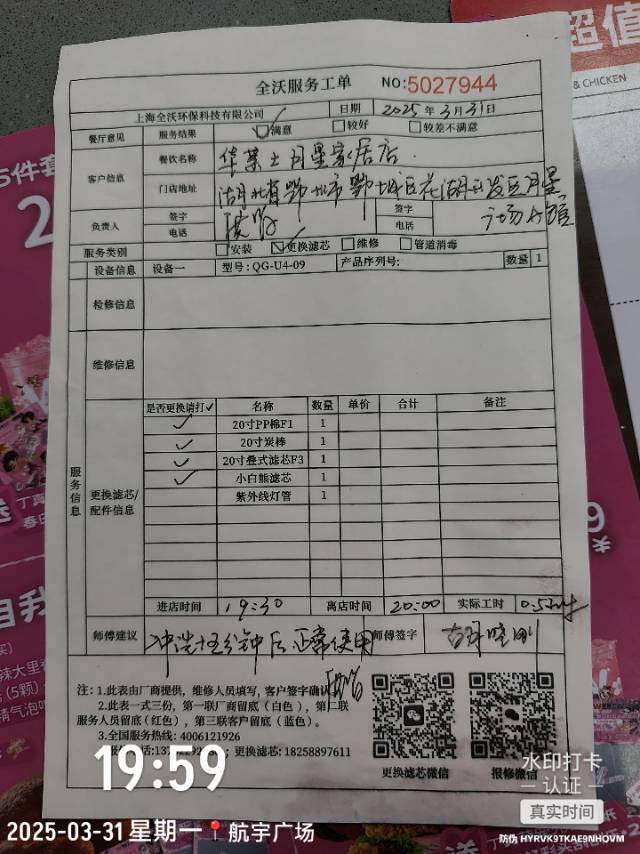 超值
& CHICKEN
5件套
2
全沃服务工单 NO:5027944
上海全沃环保科技有限公司 日期 2025年3月31日
餐厅意见 服务结果 满意 较好 较差不满意
客户信息 餐饮名称 华莱士月星家居店
门店地址 湖北省鄂州市鄂城区花湖开发区月星
广场
负责人 签字 签字
电话 电话
服务类别 安装 更换滤芯 维修 管道消毒
设备信息 设备一 型号:QG-U4-09 产品序列号: 数量 1
检修信息
维修信息
服务信息
更换滤芯/配件信息
是否更换请打✓ 名称 数量 单价 合计 备注
✓ 20寸PP棉F1 1
✓ 20寸炭棒 1
✓ 20寸叠式滤芯F3 1
✓ 小白熊滤芯 1
紫外线灯管 1
进店时间 19:30 离店时间 20:00 实际工时 0.5
师傅建议 冲洗十五分钟后正常使用 师傅签字
注:1.此表由厂商提供,维修人员填写,客户签字确认
2.此表一式三份,第一联厂商留底(白色),第二联
服务人员留底(红色),第三联客户留底(蓝色)。
3.全国服务热线:4006121926
更换滤芯:18258897611
更换滤芯微信 报修微信
自我
19:59
2025-03-31 星期一 航宇广场
水印打卡
认证
真实时间
防伪 HYRVK9TKAE9NHOVM